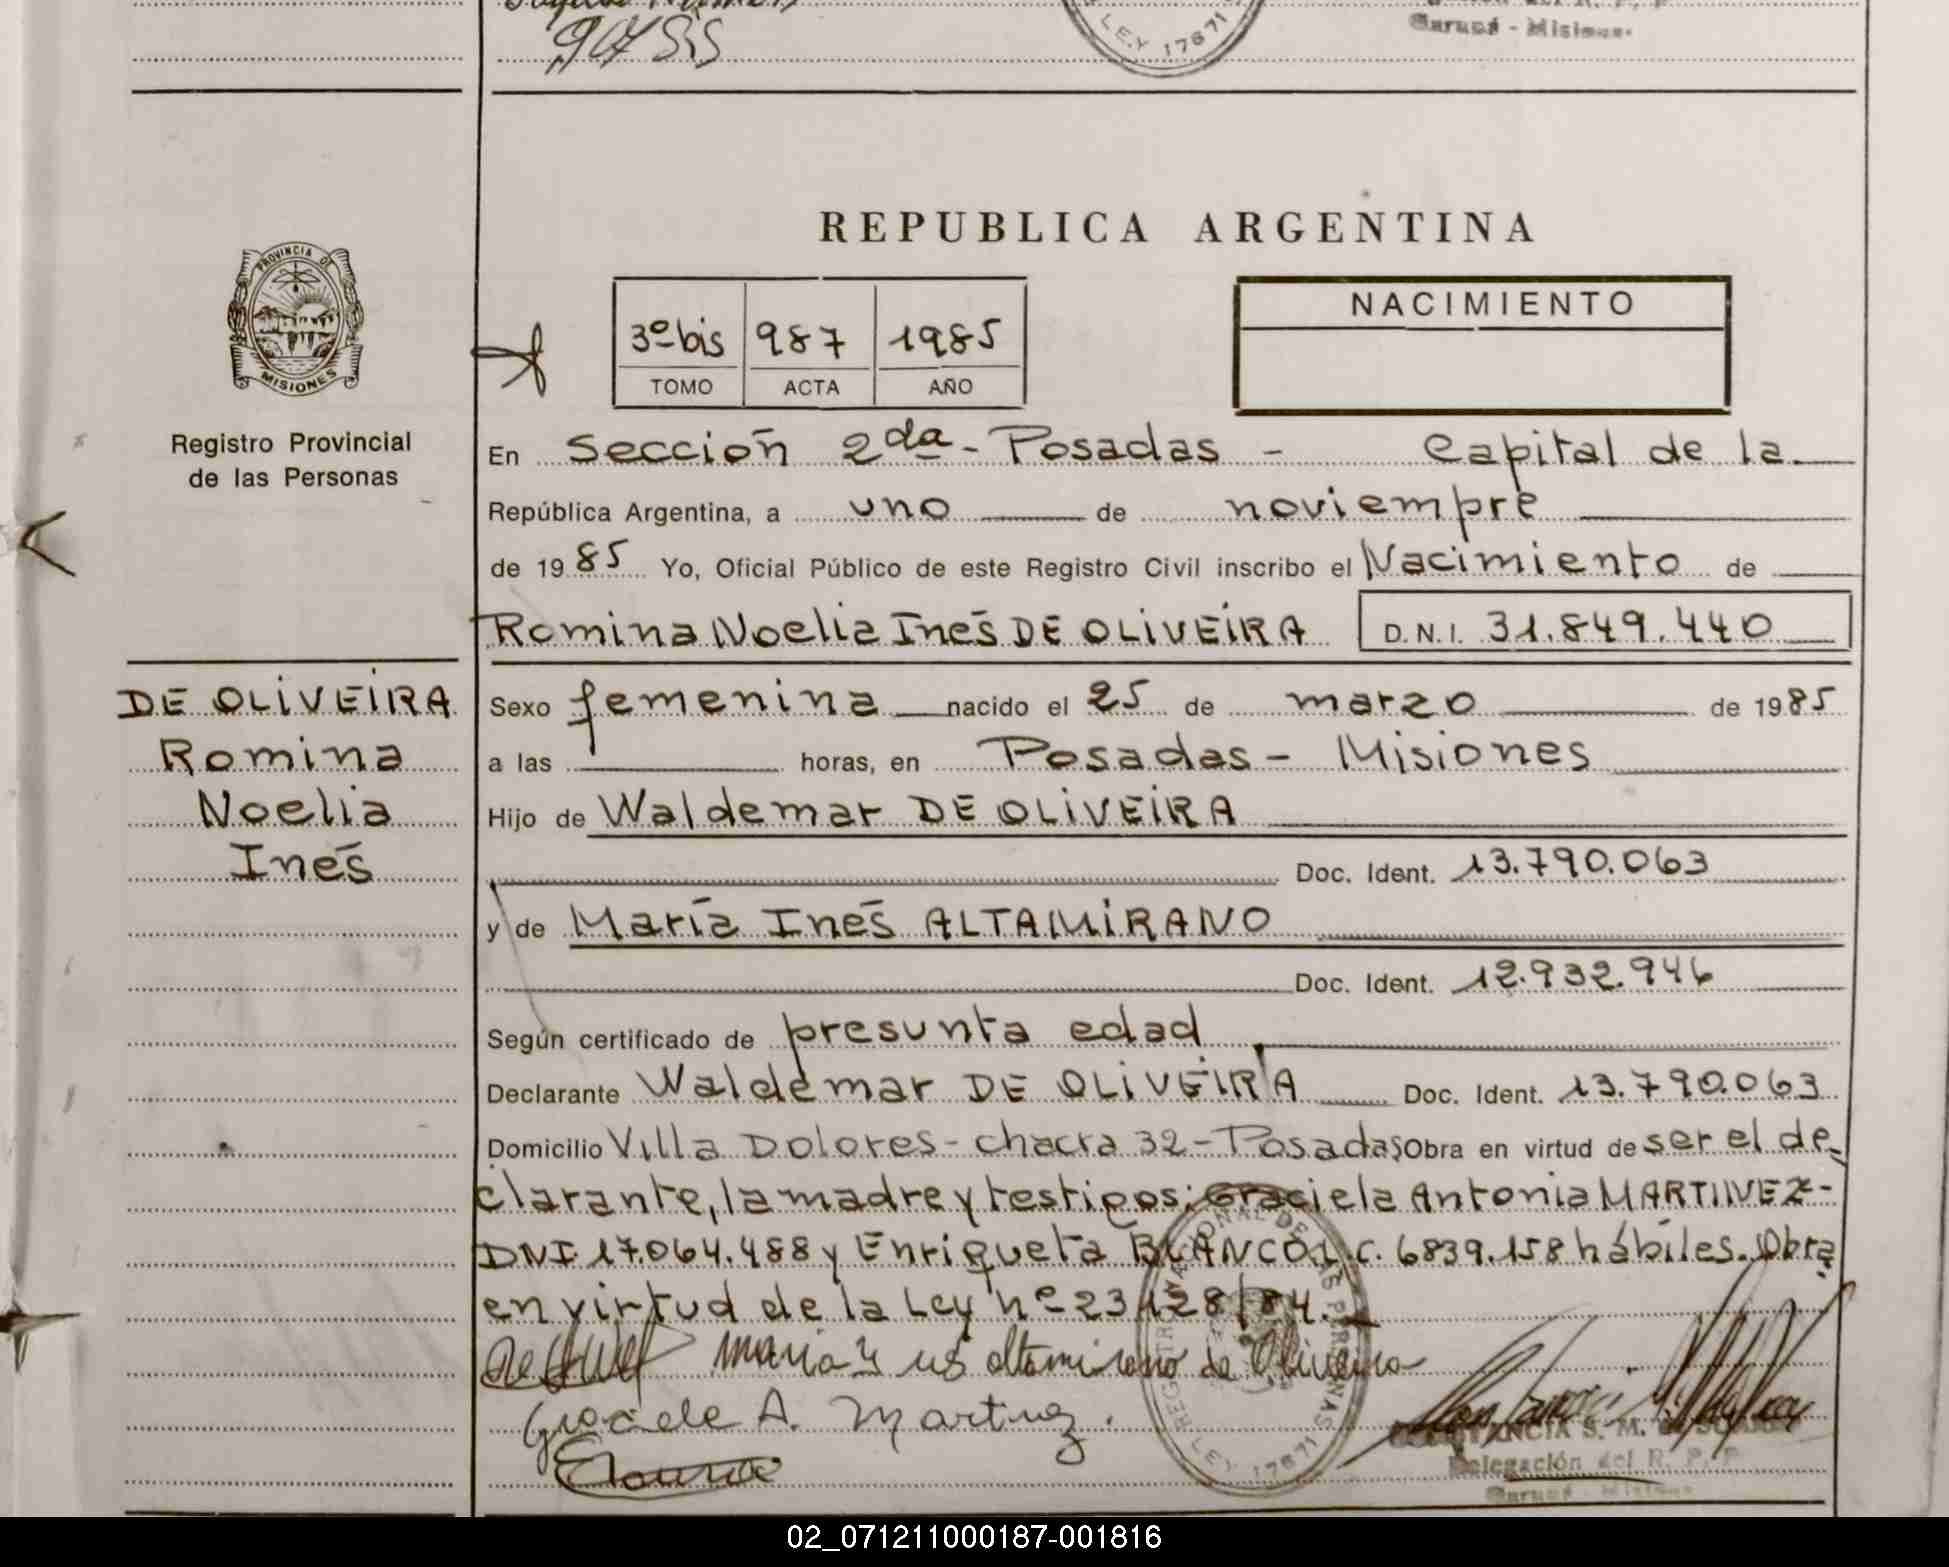 LEY 17671
Garupá - Misiones
REPUBLICA ARGENTINA
PROVINCIA DE
MISIONES
Registro Provincial
de las Personas
3º bis 987 1985
TOMO ACTA AÑO
NACIMIENTO
En Sección 2da - Posadas - Capital de la
República Argentina, a uno de noviempre
de 1985 Yo, Oficial Público de este Registro Civil inscribo el Nacimiento de
Romina Noelia Inés DE OLIVEIRA D.N.I. 31.849.440
DE OLIVEIRA
Romina
Noelia
Inés
Sexo femenina nacido el 25 de marzo de 1985
a las horas, en Posadas - Misiones
Hijo de Waldemar DE OLIVEIRA
Doc. Ident. 13.790.063
y de María Inés ALTAMIRANO
Doc. Ident. 12.932.946
Según certificado de presunta edad
Declarante Waldemar DE OLIVEIRA Doc. Ident. 13.790.063
Domicilio Villa Dolores - chacra 32 - Posadas Obra en virtud de ser el de-
clarante, la madre y testigos: Graciela Antonia MARTINEZ -
DNI. 17.064.488 y Enriqueta BLANCO L.C. 6839.158 hábiles. Obra
en virtud de la Ley nº 23128/84.
maria ines altamirano de Oliveira
Graciela A. Martinez.
REGISTRO NACIONAL DE LAS PERSONAS
LEY 17671
S. M.
Delegación del R. P. P.
Garupá - Misiones
02_071211000187-001816